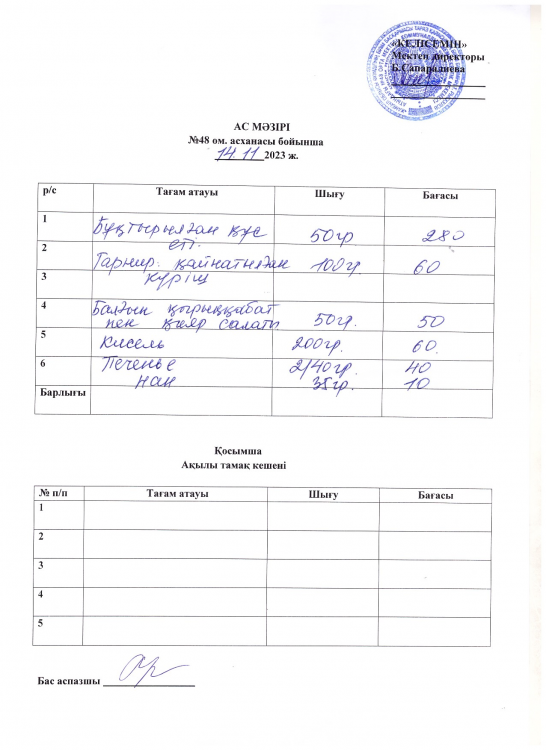 «КЕЛІСЕМІН»
Мектеп директоры
Б.Сапаралиева
АС МӘЗІРІ
№48 ом. асханасы бойынша
14. 11 2023 ж.
р/с Тағам атауы Шығу Бағасы
1 Бұқтырылған құс 50гр 280
еті.
2 Гарнир: қайнатылған 100гр. 60
3 күріш
4 Балғын қырыққабат
пен қияр салаты 50гр. 50
5 Кисель 200гр. 60.
6 Печенье 2/40гр. 40
нан 35гр. 10
Барлығы
Қосымша
Ақылы тамақ кешені
№ п/п Тағам атауы Шығу Бағасы
1
2
3
4
5
Бас аспазшы